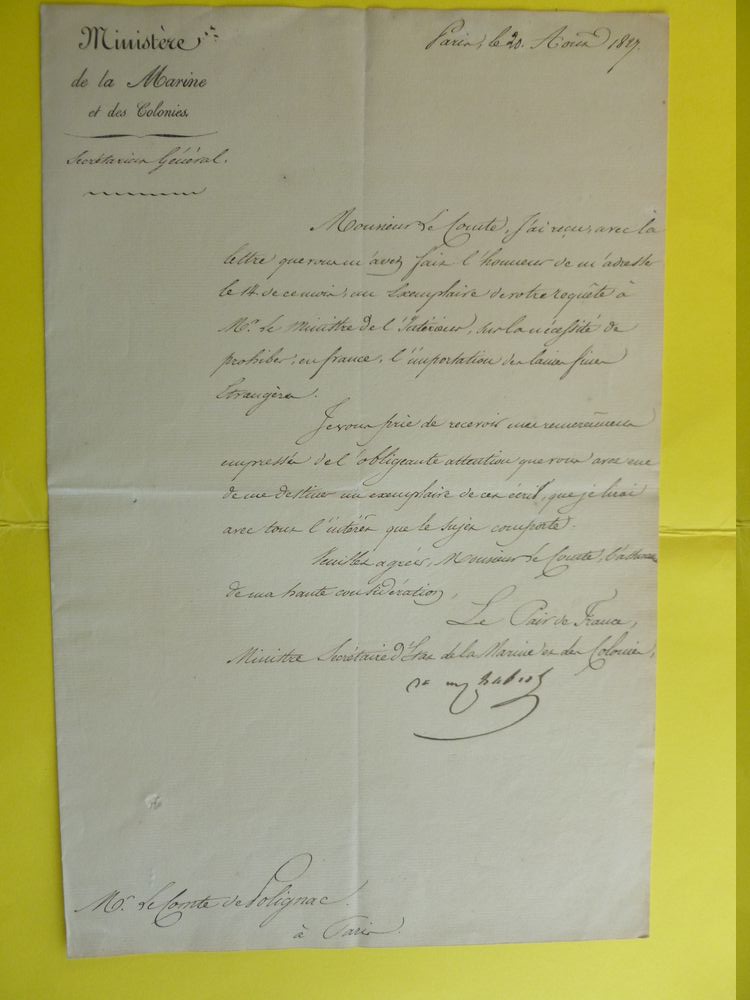 Ministère
de la Marine
et des Colonies.
Secrétariat Général.
Paris, le 20. Août 1827.
Monsieur le Comte, j'ai reçu, avec la
lettre que vous m'avez fait l'honneur de m'adresser
le 14 de ce mois, un Exemplaire de votre requête à
Mr. le Ministre de l'Intérieur, sur la nécessité de
prohiber, en france, l'importation des laines fines
Etrangères.
Je vous prie de recevoir mes remerciemens
empressés de l'obligeante attention que vous avez eue
de me destiner un exemplaire de cet écrit, que je lirai
avec tout l'intérêt que le sujet comporte.
Veuillez agréer, Monsieur le Comte, l'assurance
de ma haute considération,
Le Pair de France,
Ministre Secrétaire d'Etat de la Marine et des Colonies,
Mr. Le Comte de Polignac.
à Paris.